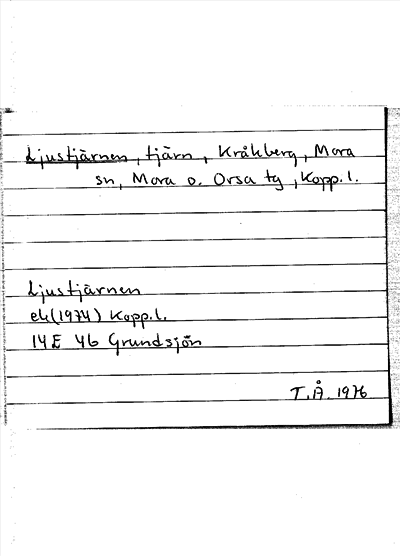 Ljustjärnen, tjärn, Kråkberg, Mora
sn, Mora o. Orsa tg, Kopp.l.
Ljustjärnen
ek(1974) Kopp.l.
14E 4b Grundsjön
T.Å. 1976